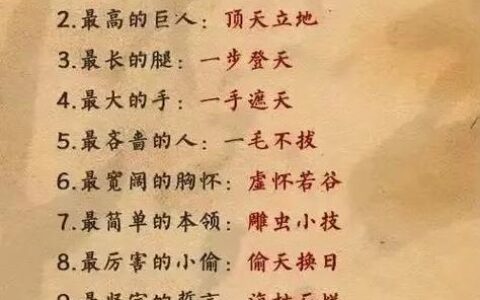 2.最高的巨人：顶天立地
3.最长的腿：一步登天
4.最大的手：一手遮天
5.最吝啬的人：一毛不拔
6.最宽阔的胸怀：虚怀若谷
7.最简单的本领：雕虫小技
8.最厉害的小偷：偷天换日